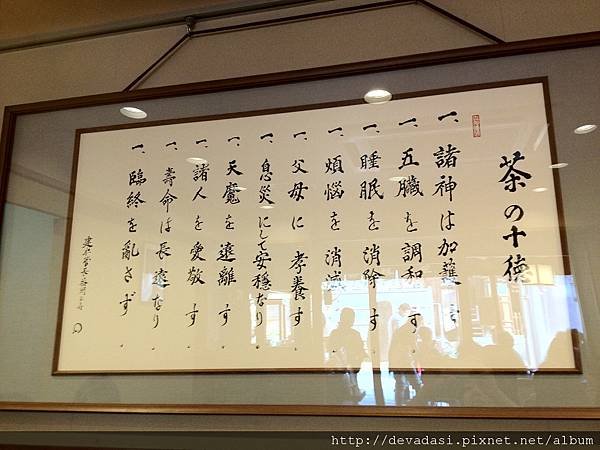 茶の十徳
一、諸神は加護す
一、五臓を調和す
一、睡眠を消除す
一、煩悩を消滅す
一、父母に孝養す
一、息災にして安穏なり
一、天魔を遠離す
一、諸人を愛敬す
一、壽命は長遠なり
一、臨終を乱さず
http://devadasi.pixnet.net/album